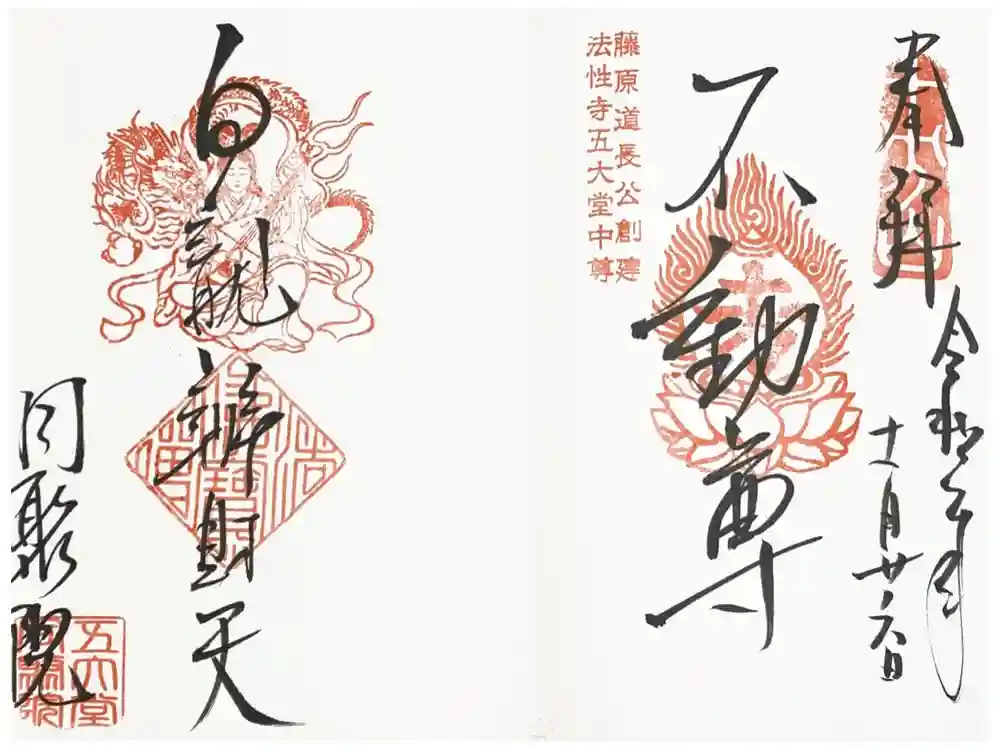 奉拝
令和二年
十一月廿六日
不動尊
藤原道長公創建
法性寺五大堂中尊
白龍辨財天
同聚院
五大堂
同聚院